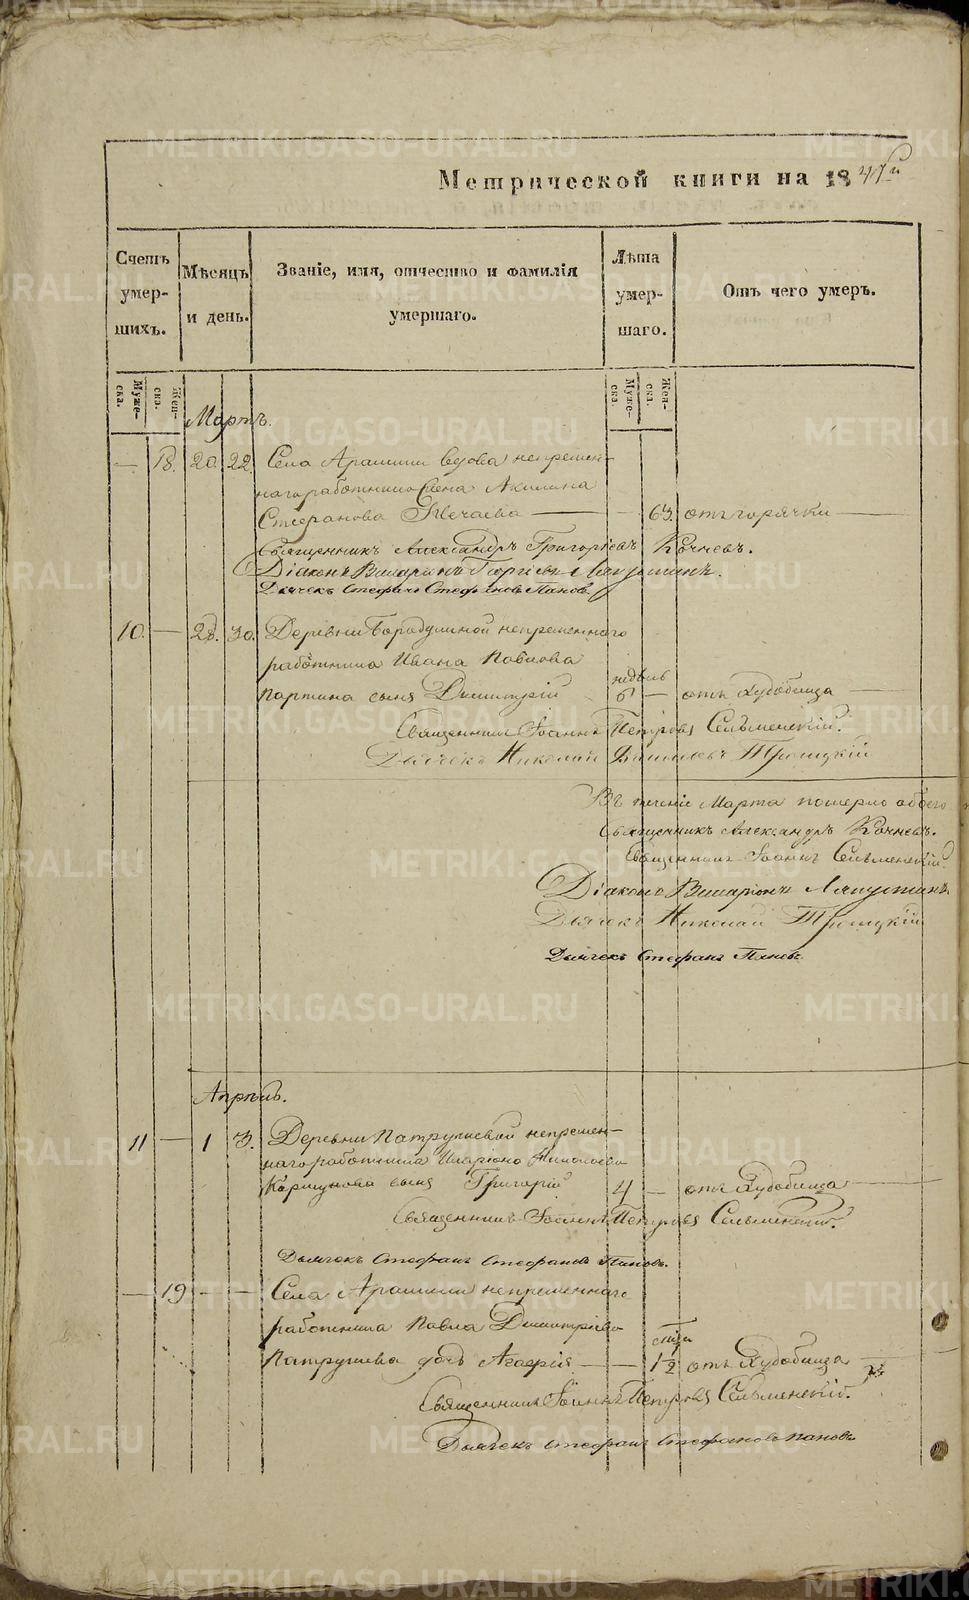 Метрической книги на 1847й
Счетъ умер-
шихъ.
Мѣсяцъ
и день.
Званіе, имя, отчество и фамилія
умершаго.
Лѣта
умер-
шаго.
Отъ чего умеръ.
Муже-
ска.
Жен-
ска.
Муже-
ска.
Жен-
ска.
Мартъ.
— 18. 20. 22. Села Арамили вдова непремен-
наго работника Акилина
Стефанова Нечаева — 63. отъ горячки —
Священникъ Александръ Григоріевъ Кочневъ.
Діаконъ Виссаріонъ Лапустинъ.
Дьячекъ Стефанъ Стефановъ Пановъ.
10. — 28. 30. Деревни Бородулиной непременнаго
работника Ивана Павлова
Партина сынъ Димитрій
недѣль
6 — отъ худобища —
Священникъ Іоаннъ Петровъ Сельменскій.
Дьячекъ Николай Троицкій
Въ теченіе Марта померло обоего
Священникъ Александръ Кочневъ.
Священникъ Іоаннъ Сельменскій.
Діаконъ Виссаріонъ Лапустинъ.
Дьячекъ Николай Троицкій
Дьячекъ Стефанъ Пановъ
Апрѣль.
11 — 1 3. Деревни Патрушевой непремен-
наго работника Иларіона Николаева
Коршунова сынъ Григорій 4 — отъ худобища —
Священникъ Іоаннъ Петровъ Сельменскій.
Дьячекъ Стефанъ Стефановъ Пановъ.
— 19 — — Села Арамили непременнаго
работника Павла Димитріева
Патрушева дочь Агафія — 1½ отъ худобища —
Священникъ Іоаннъ Петровъ Сельменскій.
Дьячекъ Стефанъ Стефановъ Пановъ
METRIKI.GASO-URAL.RU